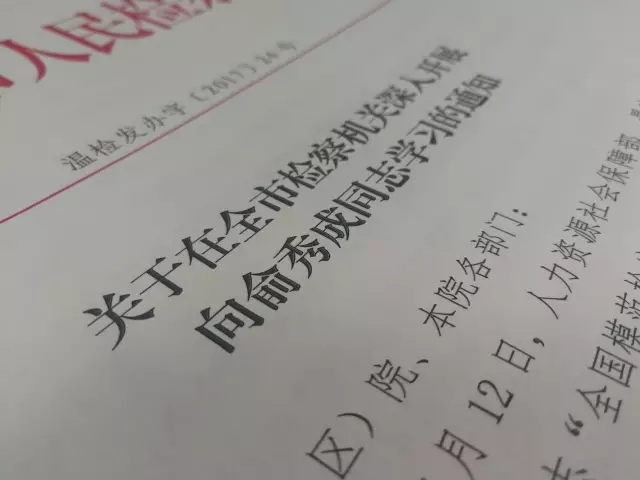 人民检察
温检发办字〔2017〕24号
关于在全市检察机关深入开展
向俞秀成同志学习的通知
区）院、本院各部门：
月12日，人力资源社会保障部
“全国模范